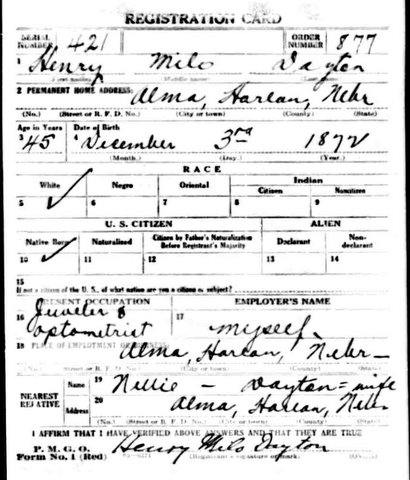 REGISTRATION CARD
SERIAL NUMBER 421 ORDER NUMBER 877
1 Henry Milo Dayton
(First name) (Middle name) (Last name)
2 PERMANENT HOME ADDRESS:
Alma, Harlan, Nebr
(No.) (Street or R. F. D. No.) (City or town) (County) (State)
Age in Years Date of Birth
3 45 4 December 3rd 1872
(Month.) (Day.) (Year.)
RACE
White Negro Oriental Indian
Citizen Noncitizen
5 ✓ 6 7 8 9
U. S. CITIZEN ALIEN
Native Born Naturalized Citizen by Father's Naturalization Before Registrant's Majority Declarant Non-declarant
10 ✓ 11 12 13 14
15
If not a citizen of the U. S., of what nation are you a citizen or subject?
PRESENT OCCUPATION EMPLOYER'S NAME
16 Jeweler & optometrist 17 myself
18 PLACE OF EMPLOYMENT OR BUSINESS:
Alma, Harlan, Nebr —
(No.) (Street or R. F. D. No.) (City or town) (County) (State)
NEAREST RELATIVE Name 19 Nellie — Dayton = wife
Address 20 Alma, Harlan, Nebr
(No.) (Street or R. F. D. No.) (City or town) (County) (State)
I AFFIRM THAT I HAVE VERIFIED ABOVE ANSWERS AND THAT THEY ARE TRUE
P. M. G. O.
Form No. 1 (Red) Henry Milo Dayton
(Registrant's signature or mark)